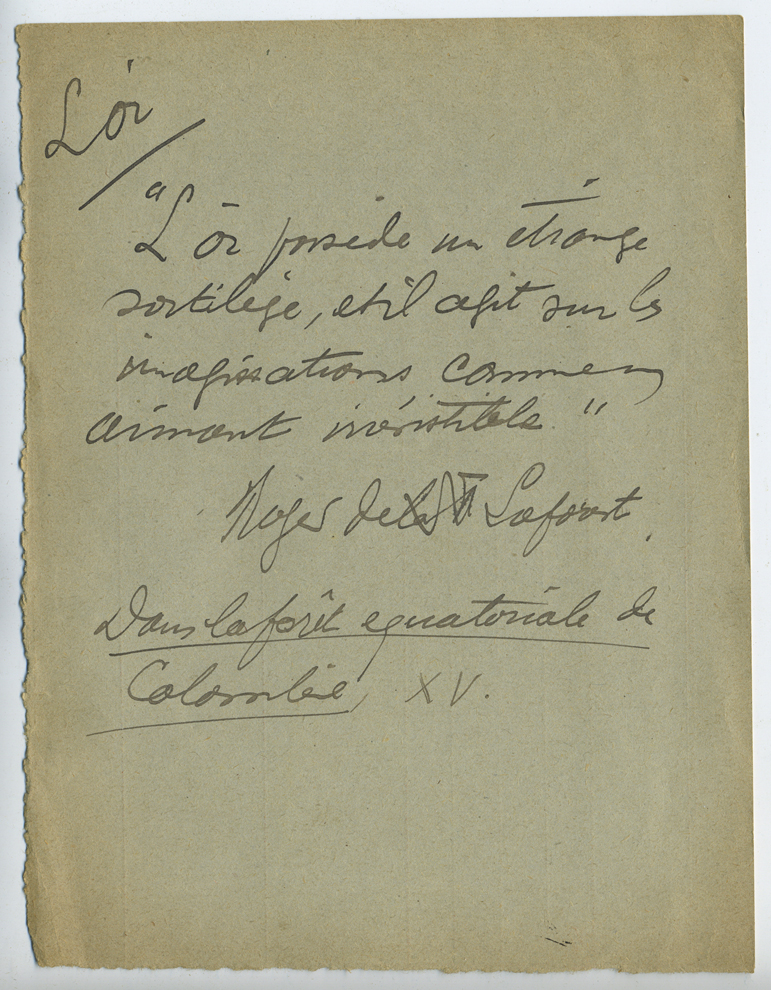 L'or
"L'or possède un étrange
sortilège, et il agit sur les
imaginations comme un
aimant irrésistible."
Roger de Lafort.
Dans la forêt equatoriale de
Colombie, XV.